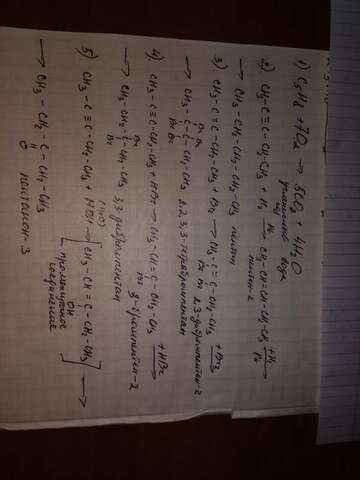 1) C5H8 + 7O2 → 5CO2 + 4H2O
углекислый газ вода
2) CH3-C≡C-CH2-CH3 + H2 →Ni CH3-CH=CH-CH2-CH3 +H2 Ni→
пентен-2
→ CH3-CH2-CH2-CH2-CH3 пентан
3) CH3-C≡C-CH2-CH3 + Br2 → CH3-C=C-CH2-CH3 + Br2 →
Br Br 2,3-дибромпентен-2
Br Br
→ CH3-C-C-CH2-CH3 2,2,3,3-тетрабромпентан
Br Br
4) CH3-C≡C-CH2-CH3 + HBr → CH3-CH=C-CH2-CH3 +HBr→
Br 3-бромпентен-2
Br
→ CH3-CH2-C-CH2-CH3 3,3-дибромпентан
Br
5) CH3-C≡C-CH2-CH3 + HOH (H2O) → [CH3-CH=C-CH2-CH3] →
OH
промежуточное
соединение
→ CH3-CH2-C-CH2-CH3
O пентанон-3